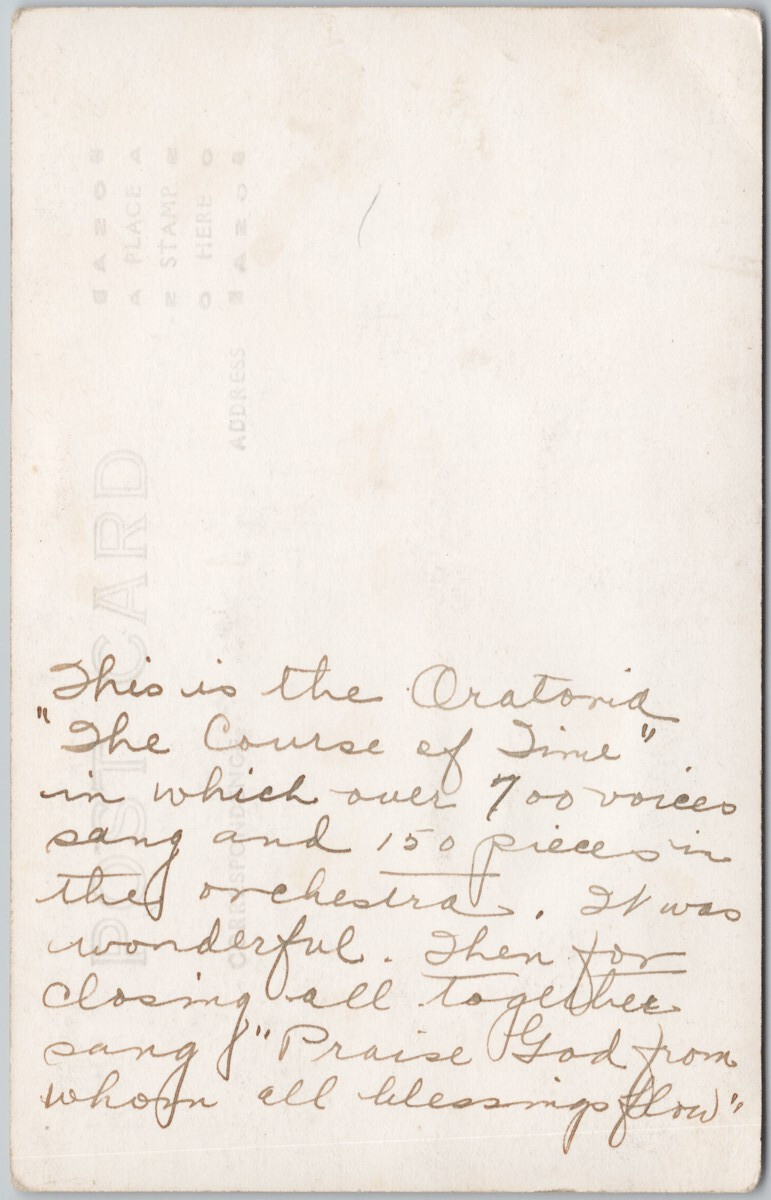 AZO AZO
A PLACE A
Z STAMP Z
O HERE O
ADDRESS
POST CARD
CORRESPONDENCE
This is the Oratorio
"The Course of Time"
in which over 700 voices
sang and 150 pieces in
the orchestra. It was
wonderful. Then for
closing all together
sang "Praise God from
whom all blessings flow"